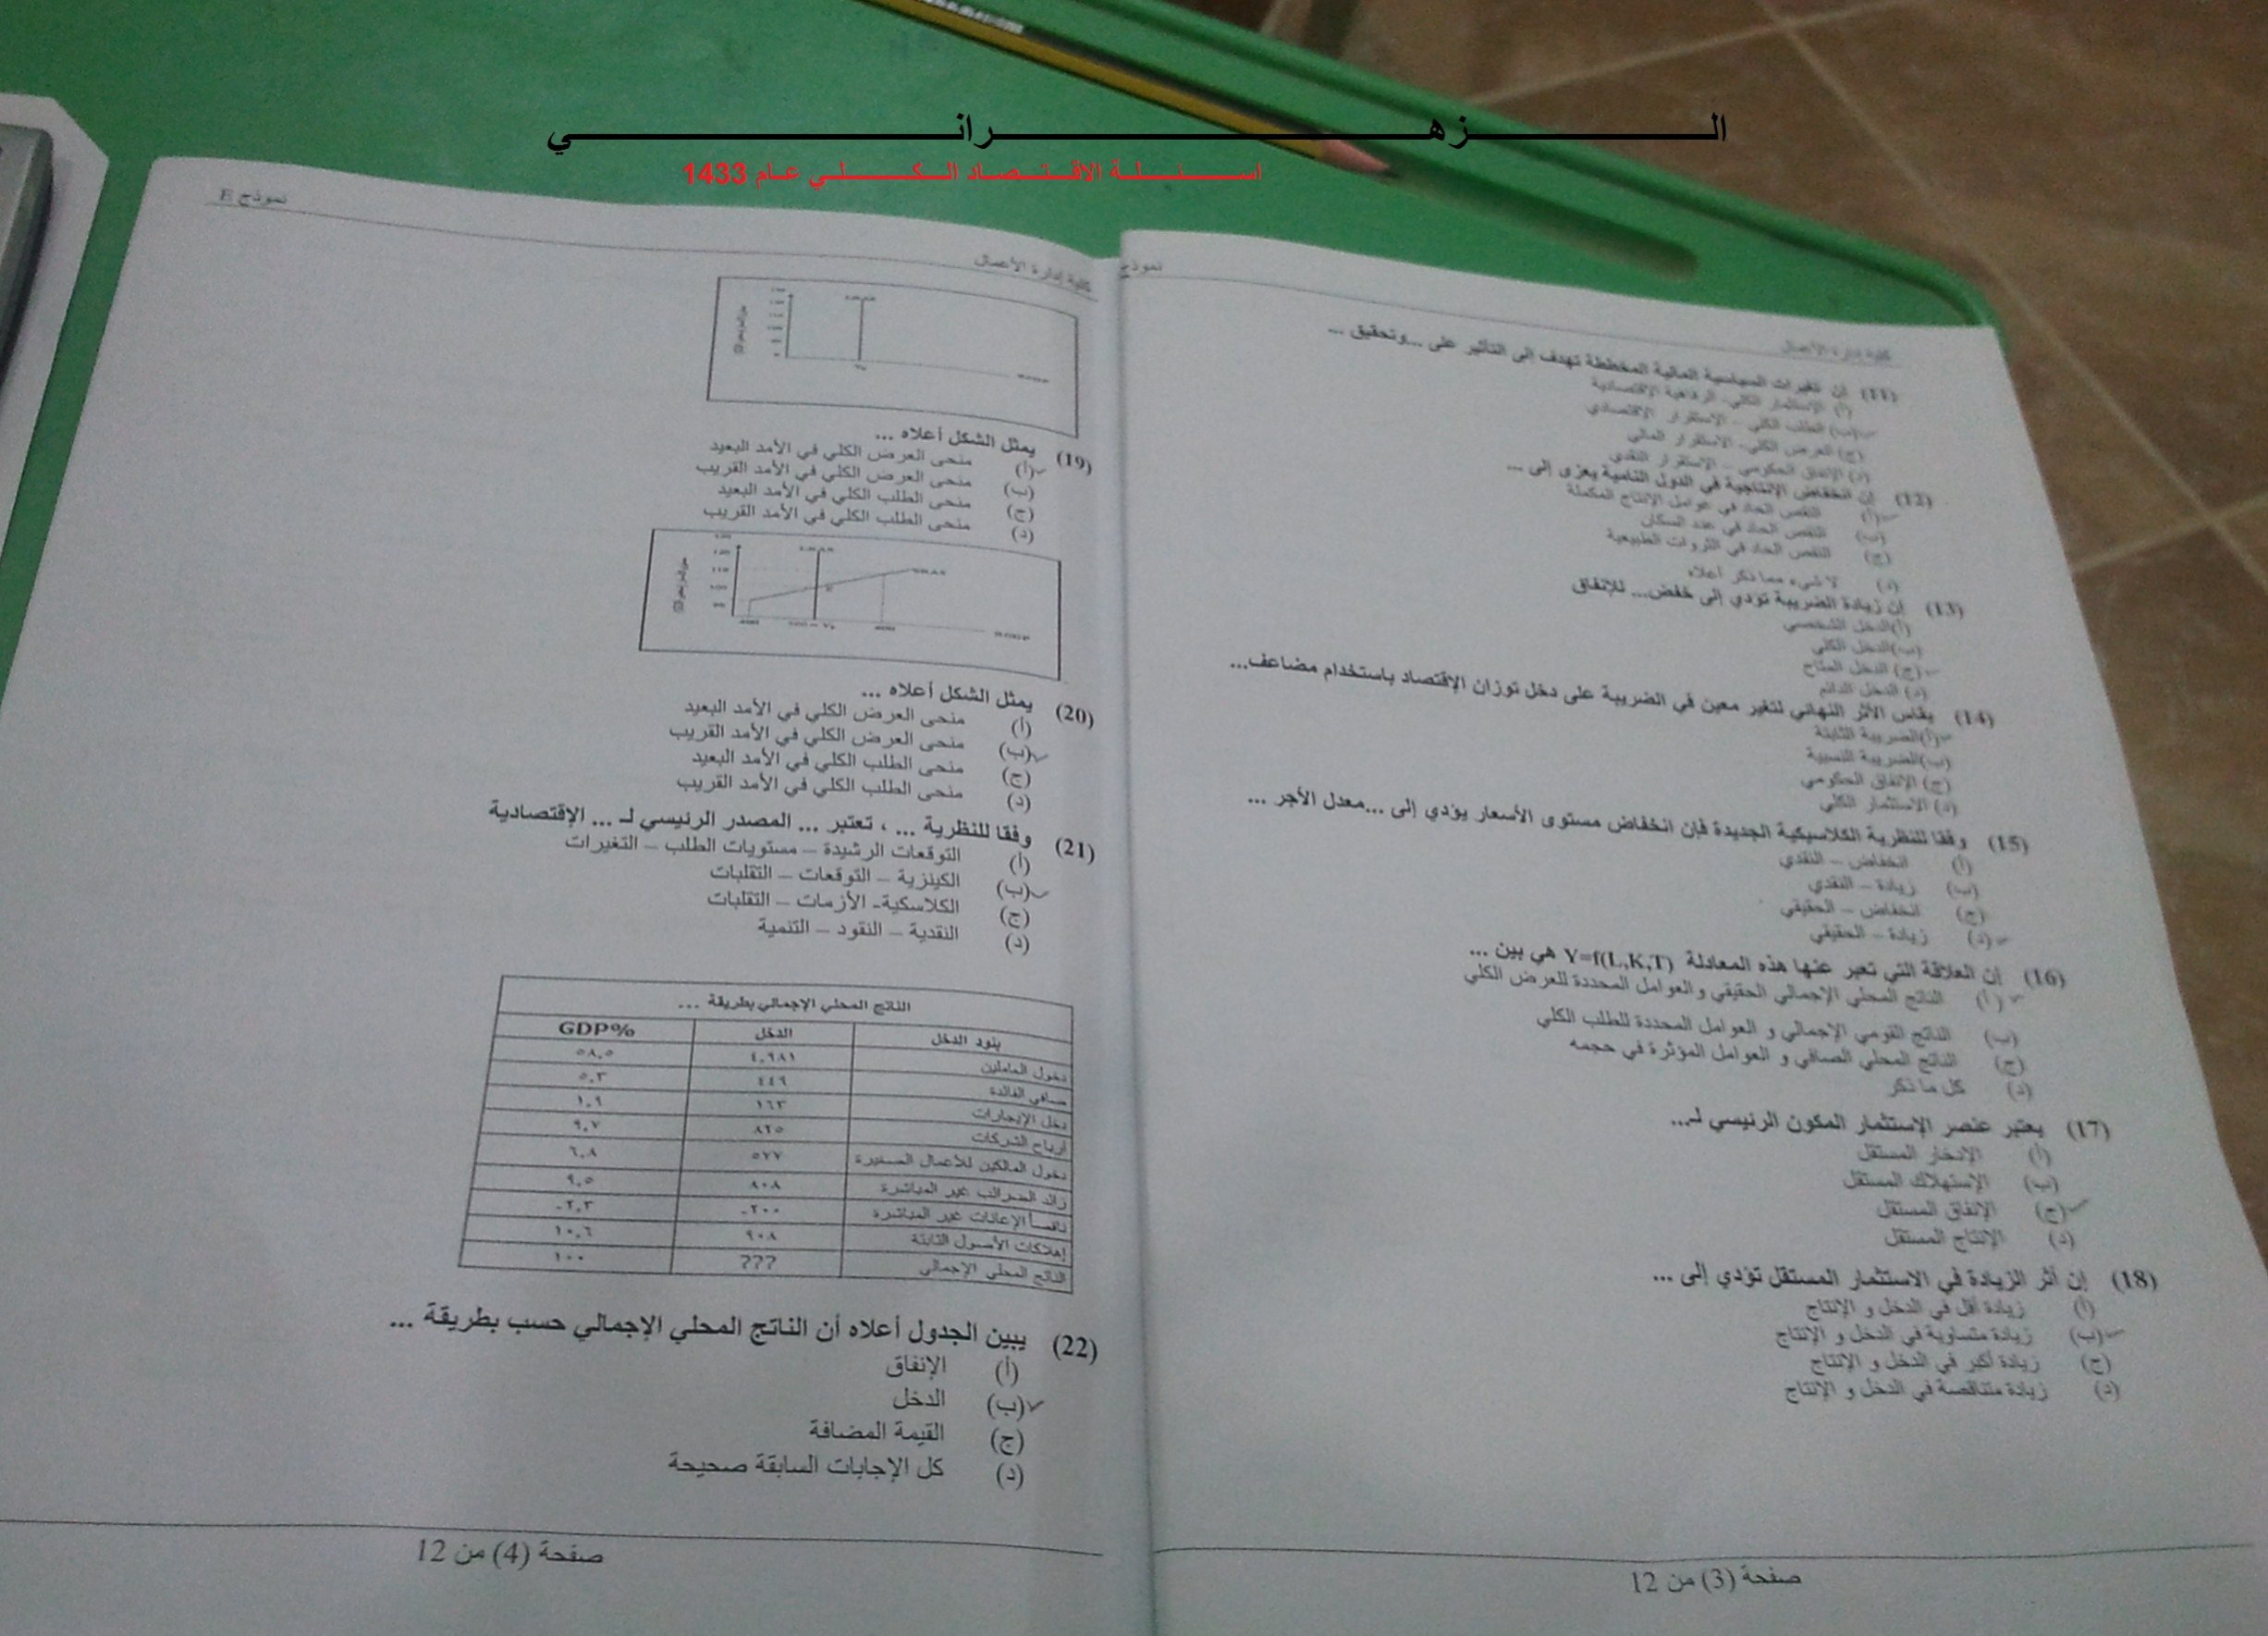 الـزهـرانـي
اسـئـلـة الاقـتـصـاد الـكـلـي عـام 1433
نموذج
كلية إدارة الأعمال
(11) إن تغيرات السياسية المالية المخططة تهدف إلى التأثير على ...وتحقيق ...
(أ) الإستثمار الكلي- الرفاهية الإقتصادية
(ب) الطلب الكلي – الإستقرار الإقتصادي
(ج) العرض الكلي- الاستقرار المالي
(د) الإنفاق الحكومي – الإستقرار النقدي
(12) إن انخفاض الإنتاجية في الدول النامية يعزى إلى ...
(أ) النقص الحاد في عوامل الإنتاج المكملة
(ب) النقص الحاد في عدد السكان
(ج) النقص الحاد في الثروات الطبيعية
(د) لا شيء مما ذكر أعلاه
(13) إن زيادة الضريبة تؤدي إلى خفض... للإنفاق
(أ)الدخل الشخصي
(ب)الدخل الكلي
(ج) الدخل المتاح
(د) الدخل الدائم
(14) يقاس الأثر النهائي لتغير معين في الضريبة على دخل توزان الإقتصاد باستخدام مضاعف...
(أ)الضريبة الثابتة
(ب)الضريبة النسبية
(ج) الإنفاق الحكومي
(د) الاستثمار الكلي
(15) وفقا للنظرية الكلاسيكية الجديدة فإن انخفاض مستوى الأسعار يؤدي إلى ...معدل الأجر ...
(أ) انخفاض – النقدي
(ب) زيادة – النقدي
(ج) انخفاض – الحقيقي
(د) زيادة – الحقيقي
(16) إن العلاقة التي تعبر عنها هذه المعادلة Y=f(L,K,T) هي بين ...
(أ) الناتج المحلي الإجمالي الحقيقي والعوامل المحددة للعرض الكلي
(ب) الناتج القومي الإجمالي و العوامل المحددة للطلب الكلي
(ج) الناتج المحلي الصافي و العوامل المؤثرة في حجمه
(د) كل ما ذكر
(17) يعتبر عنصر الإستثمار المكون الرئيسي لـ...
(أ) الإدخار المستقل
(ب) الإستهلاك المستقل
(ج) الإنفاق المستقل
(د) الإنتاج المستقل
(18) إن أثر الزيادة في الاستثمار المستقل تؤدي إلى ...
(أ) زيادة أقل في الدخل و الإنتاج
(ب) زيادة متساوية في الدخل و الإنتاج
(ج) زيادة أكبر في الدخل و الإنتاج
(د) زيادة متناقصة في الدخل و الإنتاج
صفحة (3) من 12
نموذج E
كلية إدارة الأعمال
(19) يمثل الشكل أعلاه ...
(أ) منحى العرض الكلي في الأمد البعيد
(ب) منحى العرض الكلي في الأمد القريب
(ج) منحى الطلب الكلي في الأمد البعيد
(د) منحى الطلب الكلي في الأمد القريب
(20) يمثل الشكل أعلاه ...
(أ) منحى العرض الكلي في الأمد البعيد
(ب) منحى العرض الكلي في الأمد القريب
(ج) منحى الطلب الكلي في الأمد البعيد
(د) منحى الطلب الكلي في الأمد القريب
(21) وفقا للنظرية ... ، تعتبر ... المصدر الرئيسي لـ ... الإقتصادية
(أ) التوقعات الرشيدة – مستويات الطلب – التغيرات
(ب) الكينزية – التوقعات – التقلبات
(ج) الكلاسكية- الأزمات – التقلبات
(د) النقدية – النقود – التنمية
الناتج المحلي الإجمالي بطريقة ...
بنود الدخل الدخل GDP%
دخول العاملين ٤,٩٨١ ٥٨,٥
صافي الفائدة ٤٤٩ ٥,٣
دخل الإيجارات ١٦٣ ١,٩
أرباح الشركات ٨٢٥ ٩,٧
دخول المالكين للأعمال الصغيرة ٥٧٧ ٦,٨
زائد الضرائب غير المباشرة ٨٠٨ ٩,٥
ناقصاً الإعانات غير المباشرة ٢٠٠- ٢,٣-
إهلاكات الأصول الثابتة ٩٠٨ ١٠,٦
الناتج المحلي الإجمالي ??? ١٠٠
(22) يبين الجدول أعلاه أن الناتج المحلي الإجمالي حسب بطريقة ...
(أ) الإنفاق
(ب) الدخل
(ج) القيمة المضافة
(د) كل الإجابات السابقة صحيحة
صفحة (4) من 12